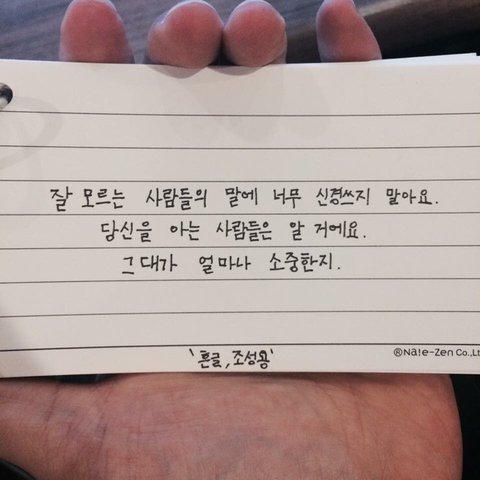 잘 모르는 사람들의 말에 너무 신경쓰지 말아요.
당신을 아는 사람들은 알 거에요.
그대가 얼마나 소중한지.
'흔글, 조성용'
®Na!e-Zen Co.,Lt